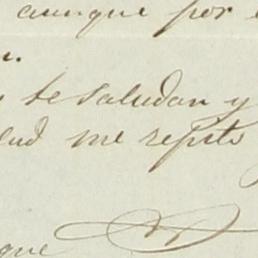 aunque por
te saludan y
me repito
que